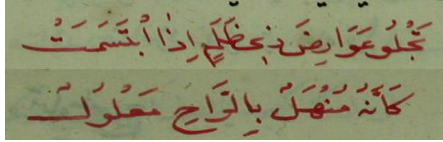 تَجْلُو عَوَارِضَ ذِي ظَلْمٍ إِذَا ابْتَسَمَتْ
كَأَنَّهُ مُنْهَلٌ بِالرَّاحِ مَعْلُولُ